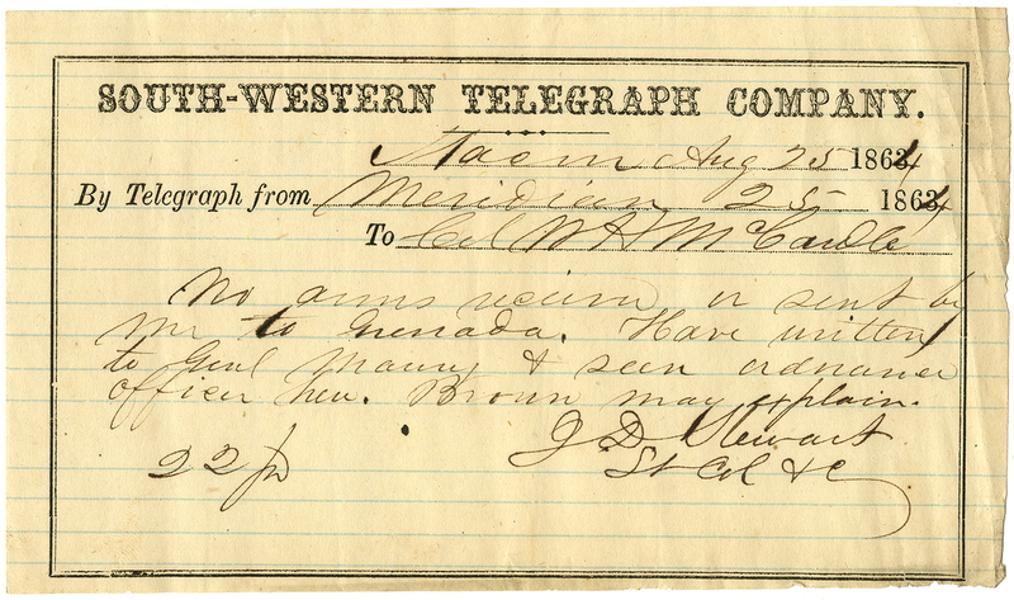 SOUTH-WESTERN TELEGRAPH COMPANY.
Macon Aug 25 1864
By Telegraph from Meridian 25 1864
To Col W H McCardle
No arms receivd or sent by
me to Grenada. Have written
to Genl Maury & seen ordnance
officer here. Brown may explain.
J D Stewart
Lt Col &c
22 pd